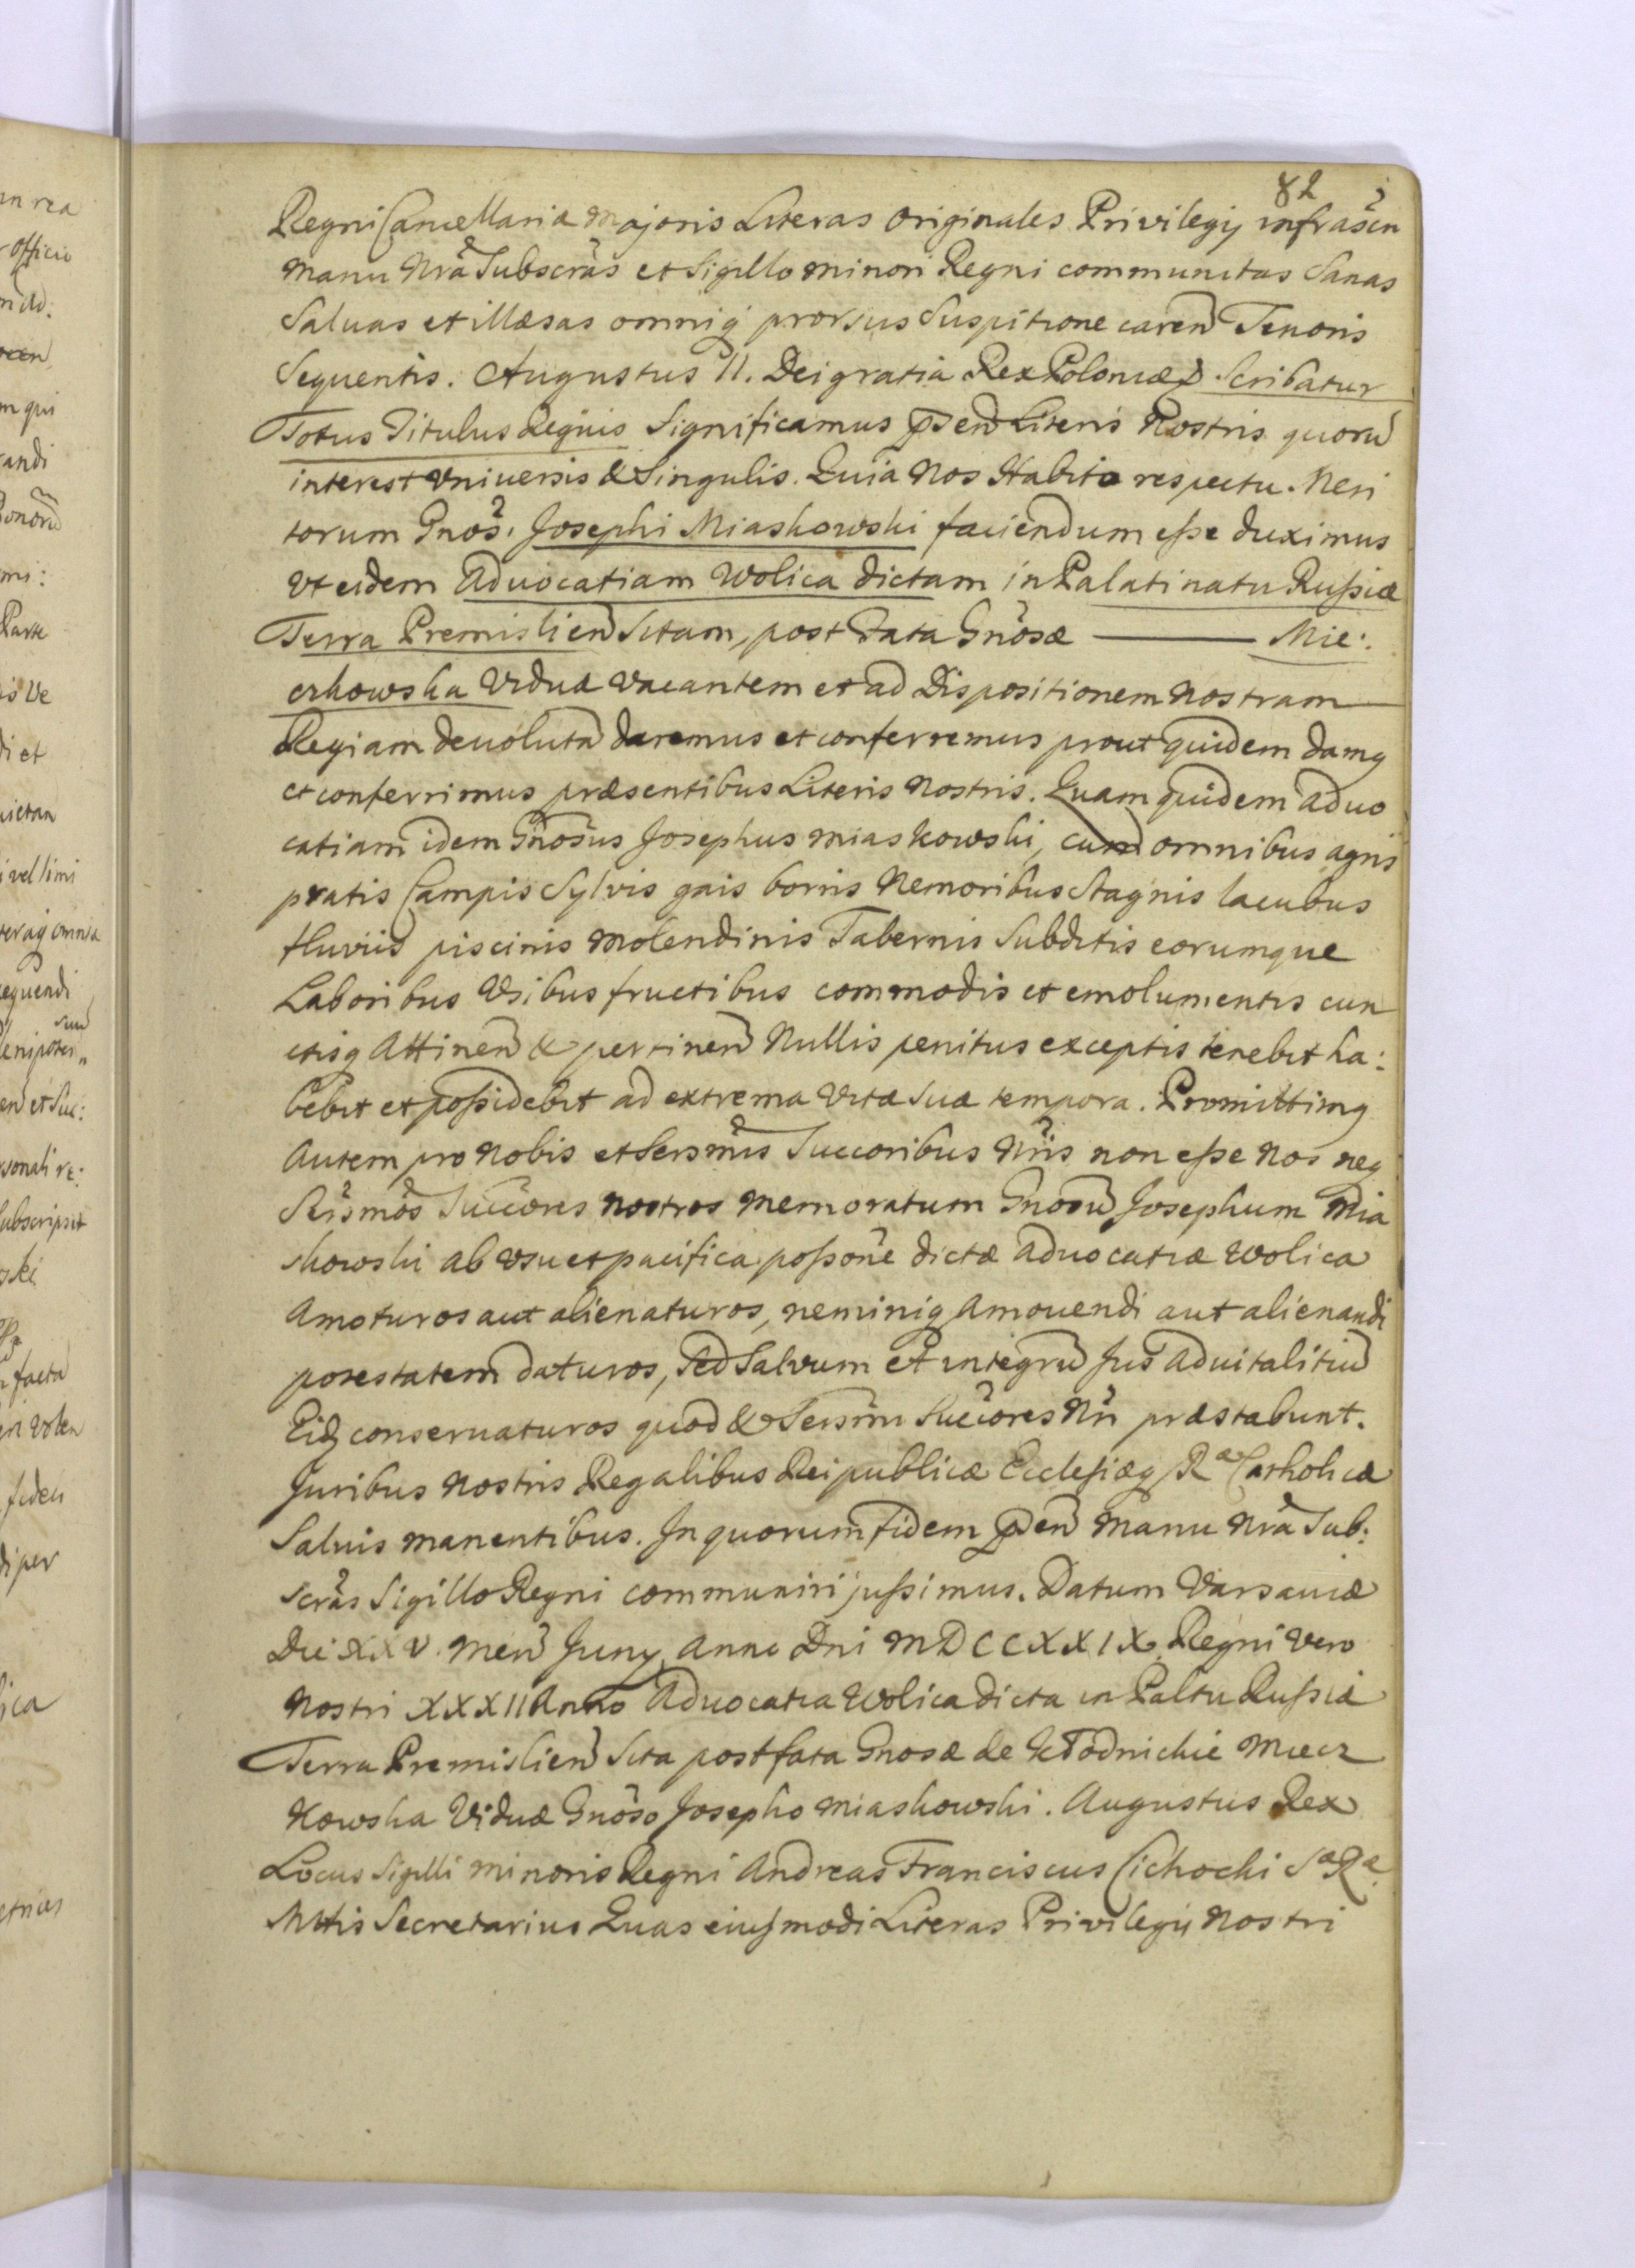 82
Regni Cancellaria Majoris Literas originales Privilegij infrascn
manu Nrã Subscrãs et Sigillo minori Regni communitas Sanas
Salvas et illæsas omniq̨ prorsus Suspitione caren̄ Tenoris
Sequentis. Augustus II. Dei gratia Rex Poloniæ Scribatur
Totus Titulus Regius Significamus p̄sen̄ Literis Nostris quorū
interest Vniuersis & Singulis. Quia Nos Habito respectu. Meri
torum Gnos̃. Josephi Miaskowski faciendum eſse duximus
Vt eidem Aduocatiam Wolica dictam in Palatinatu Ruſsiæ
Terra Premislien̄ Sitam, post Fata Gnõsæ ——— Mie:
czkowska Viduæ Vacantem et ad Dispositionem Nostram
Regiam deuolutã daremus et conferremus prout quidem damq
et conferrimus præsentibus Literis Nostris. Quam quidem aduo
catiam idem Gnõsus Josephus Miaskowski, cum omnibus agris
pratis Campis Sylvis gais borris Nemoribus Stagnis lacubus
fluviis piscinis Molendinis Tabernis Subditis eorumque
Laboribus Vsibus fructibus commodis et emolumentis cun
ctisq Attinen̄ & pertinen̄ Nullis penitus exceptis tenebit ha:
bebit et poſsidebit ad extrema Vitæ Suæ tempora. Promittimq
Autem pro Nobis et Sersmis Succoribus Nris non eſse Nos neq
Sersmos Succores nostros Memoratum Gnosū Josephum Mia
skowski ab Vsu et pacifica poſsone dictæ Aduocatiæ Wolica
Amoturos aut alienaturos, neminiq Amouendi aut alienandi
potestatem daturos, Sed Salvum et integrū Jus Aduitalitiū
Eidq conseruaturos quod & Sersmi Succores Nri præstabunt.
Juribus Nostris Regalibus Reipublicæ Eccleſiæq Rᵃ Catholicæ
Salvis manentibus. In quorum fidem p̄sen̄ Manu Nrã Sub:
scrãs Sigillo Regni communiri juſsimus. Datum Varsaviæ
Die XXV. Men̄ Juny Anno Dni MDCCXXIX. Regni Vero
Nostri XXXII Anno Aduocatia Wolica dicta in Paltu Ruſsiæ
Terra Premislien̄ Sita post fata Gnosæ de Kłodnickie Miecz
Kowska Viduæ Gnõso Josepho Miaskowski. Augustus Rex
Locus Sigilli minoris Regni Andreas Franciscus Cichocki Sᵃ Rᵃ
Mttis Secretarius Quas eiuſmodi Literas Privilegij Nostri